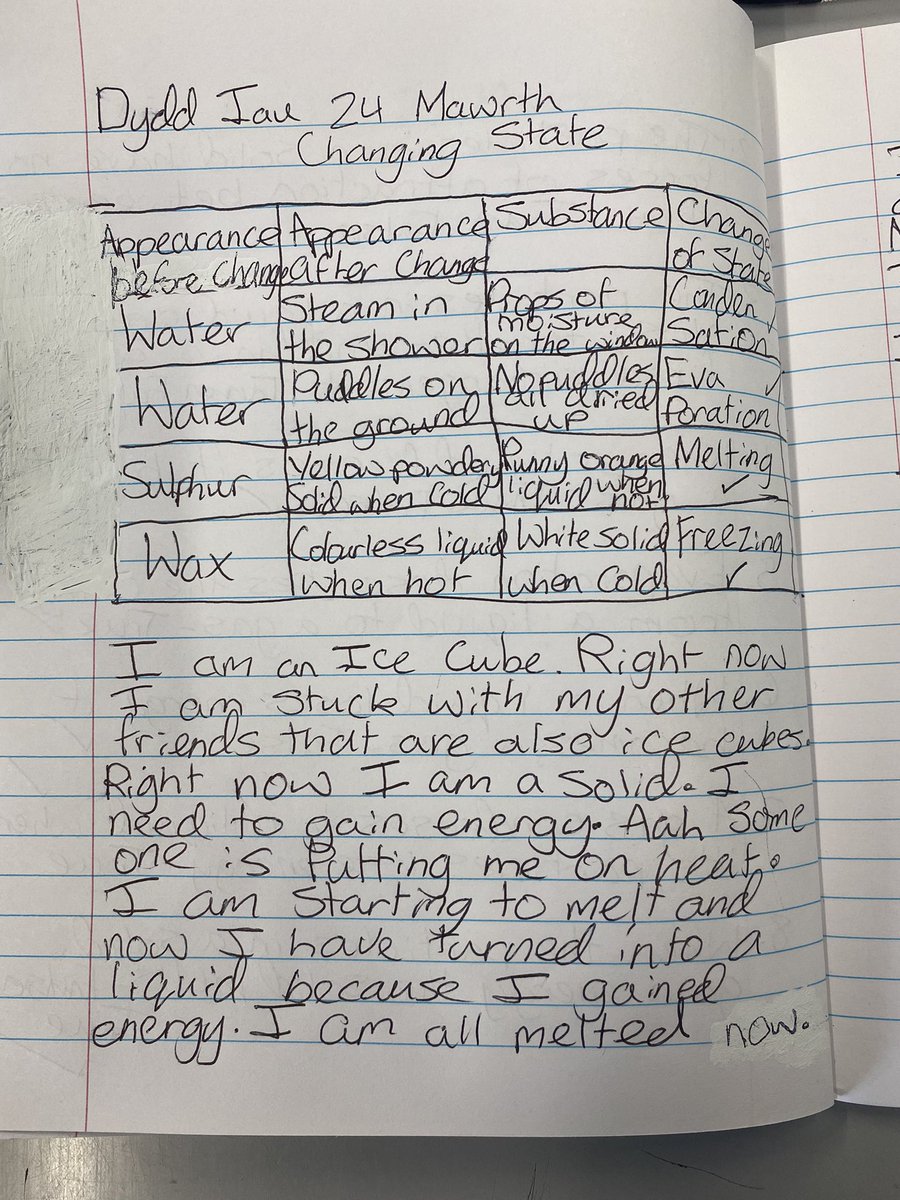 Dydd Iau 24 Mawrth
Changing State
Appearance before Change | Appearance after Change | Substance | Change of State
Water | Steam in the shower | Drops of moisture on the window | Conden Sation
Water | Puddles on the ground | No puddles all dried up | Eva Poration
Sulphur | Yellow powdery Solid when Cold | Runny orange liquid when hot | Melting
Wax | Colourless liquid when hot | White solid when Cold | Freezing
I am an Ice Cube. Right now
I am stuck with my other
friends that are also ice cubes.
Right now I am a Solid. I
need to gain energy. Aah some
one is Putting me on heat.
I am Starting to melt and
now I have turned into a
liquid because I gained
energy. I am all melted now.